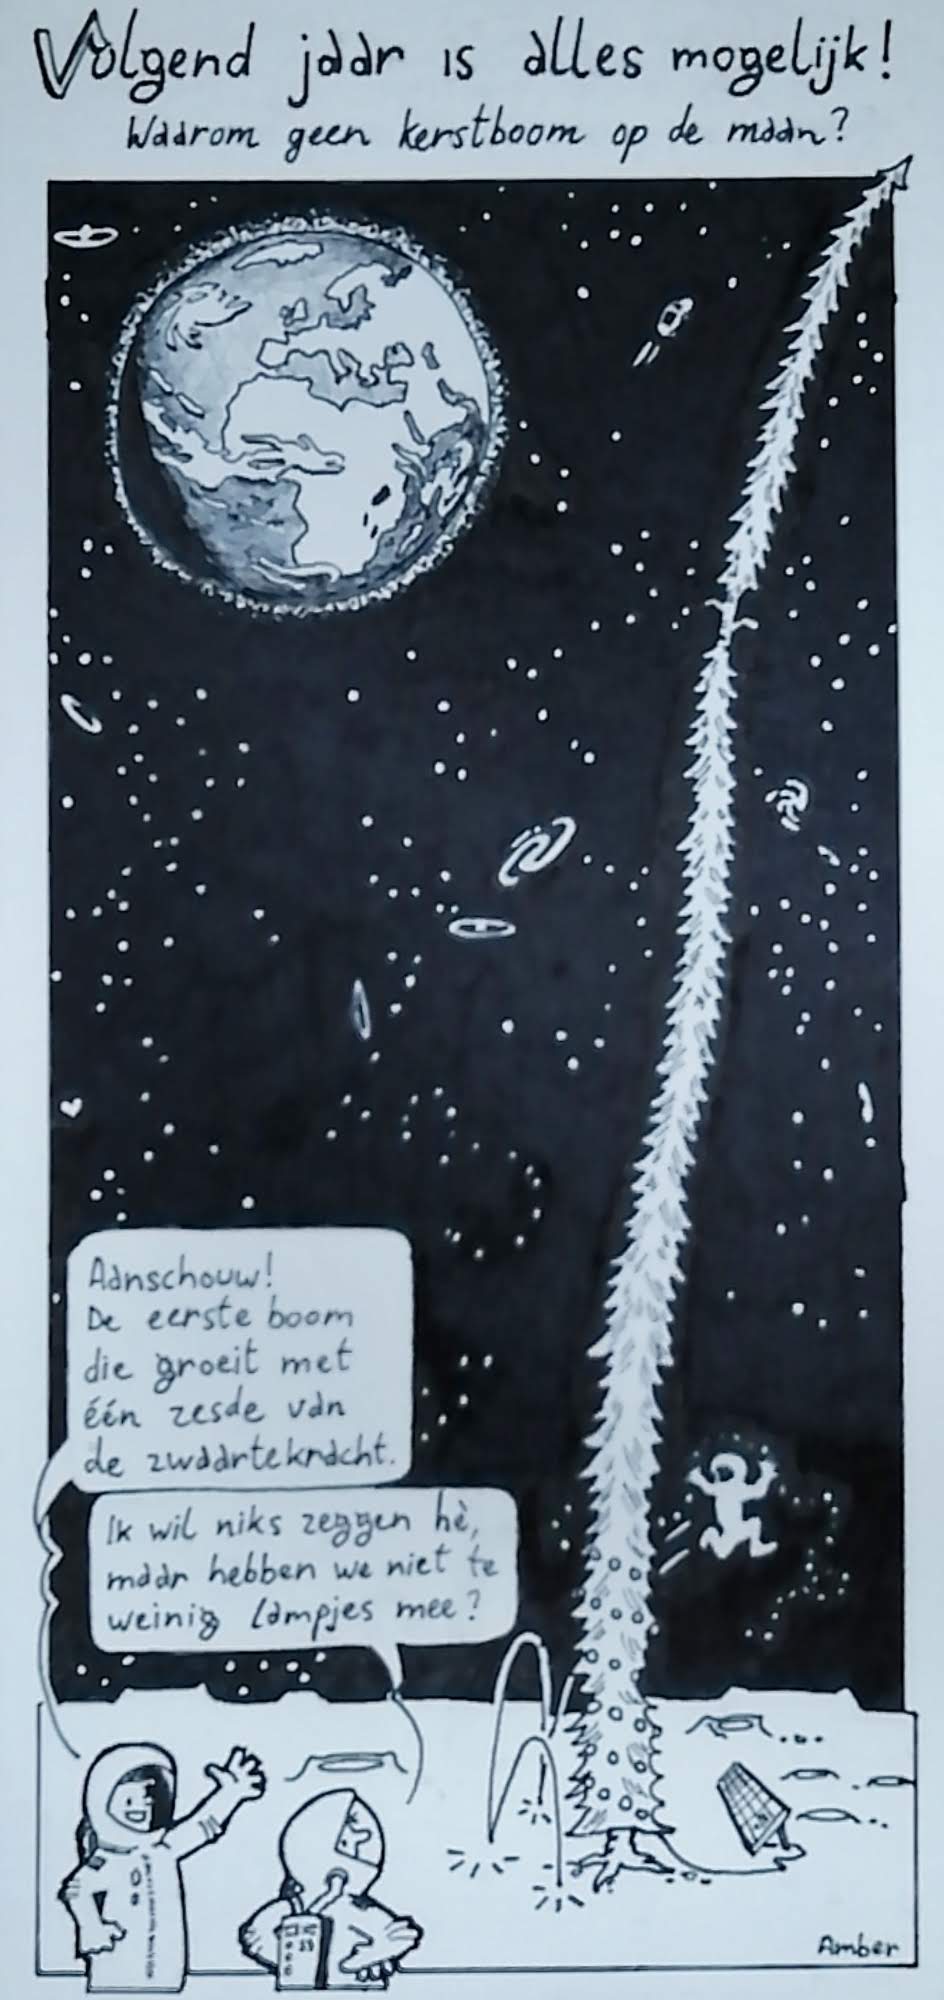 Volgend jaar is alles mogelijk!
Waarom geen kerstboom op de maan?
Aanschouw!
De eerste boom
die groeit met
één zesde van
de zwaartekracht.
Ik wil niks zeggen hè,
maar hebben we niet te
weinig lampjes mee?
Amber